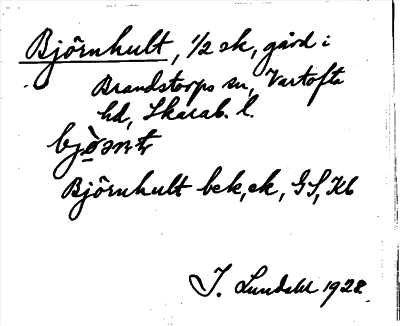 Björnhult, 1/2 sk, gård i
Brandstorps sn, Vartofta
hd, Skarab. l.
Björnhult bek, ek, GS, Kb
I. Lundahl 1928.